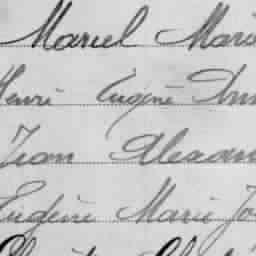 Marcel Marie
Henri Eugène Ann
Jean Alexan
Eugène Marie Jo